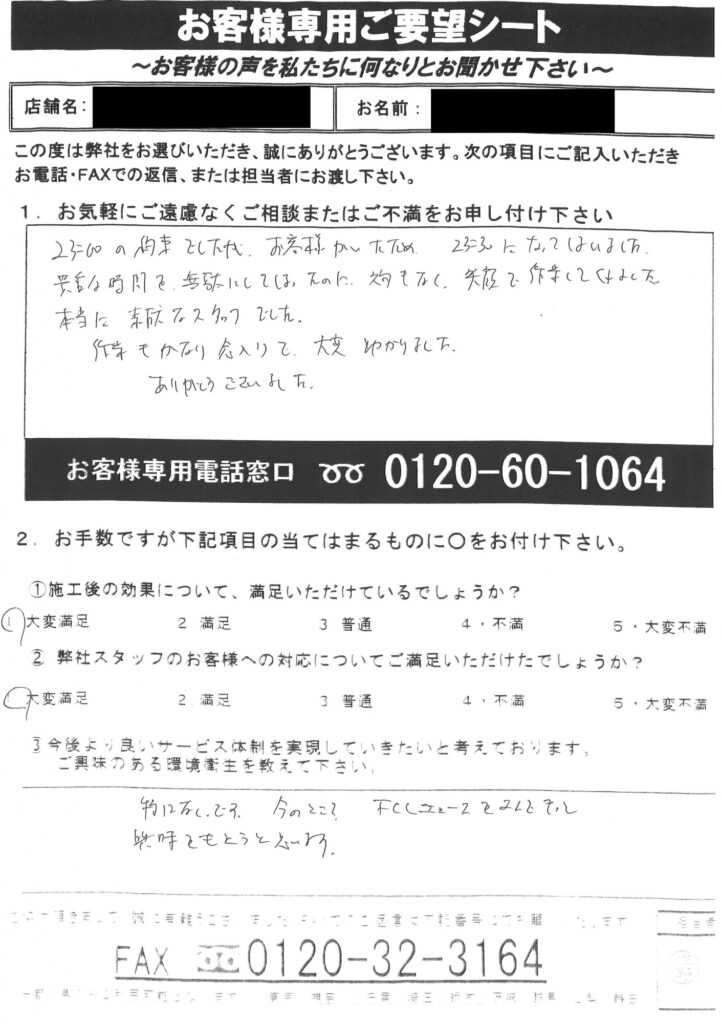 お客様専用ご要望シート
～お客様の声を私たちに何なりとお聞かせ下さい～
店舗名：
お名前：
この度は弊社をお選びいただき、誠にありがとうございます。次の項目にご記入いただき
お電話・FAXでの返信、または担当者にお渡し下さい。
1．お気軽にご遠慮なくご相談またはご不満をお申し付け下さい
23:00の約束でしたが、お客様がいたため、23:30になってしまいました。
貴重な時間を、無駄にしてしまったのに、文句もなく、笑顔で作業してくれました
本当に素敵なスタッフでした。
作業もかなり念入りで、大変助かりました。
ありがとうございました。
お客様専用電話窓口 0120-60-1064
2．お手数ですが下記項目の当てはまるものに〇をお付け下さい。
①施工後の効果について、満足いただけているでしょうか？
1 大変満足 2 満足 3 普通 4・不満 5・大変不満
② 弊社スタッフのお客様への対応についてご満足いただけたでしょうか？
大変満足 2. 満足 3 普通 4・不満 5・大変不満
③今後より良いサービス体制を実現していきたいと考えております。
ご興味のある環境衛生を教えて下さい。
特にないです。今のところ
興味をもとうと思います。
FAX 0120-32-3164